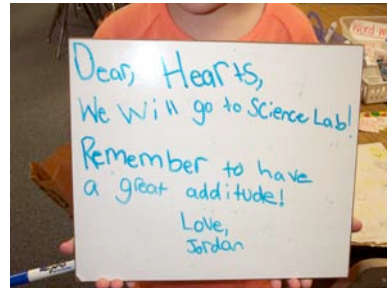 Dear, Hearts,
We will go to Science Lab!
Remember to have
a great additude!
Love,
Jordan